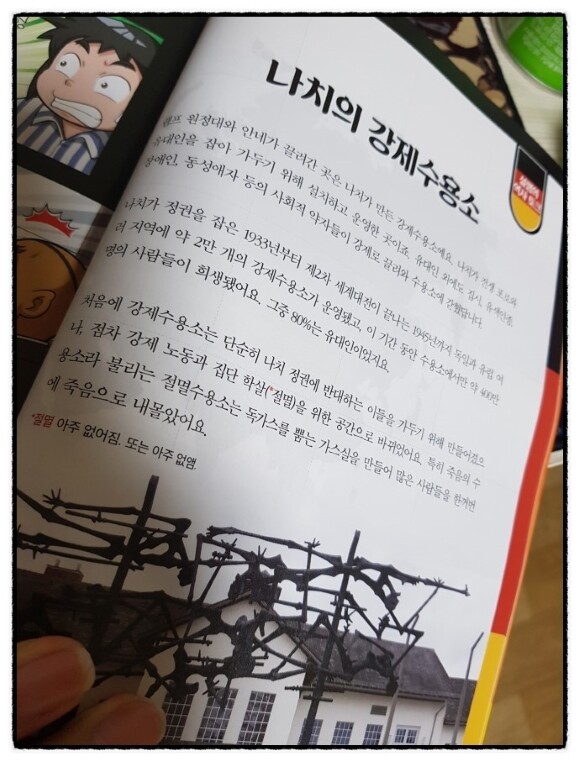 나치의 강제수용소
원정대와 안네가 끌려간 곳은 나치가 만든 강제수용소예요. 나치가 전쟁 포로와
유대인을 잡아 가두기 위해 설치하고 운영한 곳이죠. 유대인 외에도 집시, 유색인종,
장애인, 동성애자 등의 사회적 약자들이 강제로 끌려와 수용소에 갇혔답니다.
나치가 정권을 잡은 1933년부터 제2차 세계대전이 끝나는 1945년까지 독일과 유럽 여
러 지역에 약 2만 개의 강제수용소가 운영됐고, 이 기간 동안 수용소에서만 약 400만
명의 사람들이 희생됐어요. 그중 80%는 유대인이었지요.
처음에 강제수용소는 단순히 나치 정권에 반대하는 이들을 가두기 위해 만들어졌으
나, 점차 강제 노동과 집단 학살(*절멸)을 위한 공간으로 바뀌었어요. 특히 죽음의 수
용소라 불리는 절멸수용소는 독가스를 뿜는 가스실을 만들어 많은 사람들을 한꺼번
에 죽음으로 내몰았어요.
*절멸 아주 없어짐. 또는 아주 없앰.